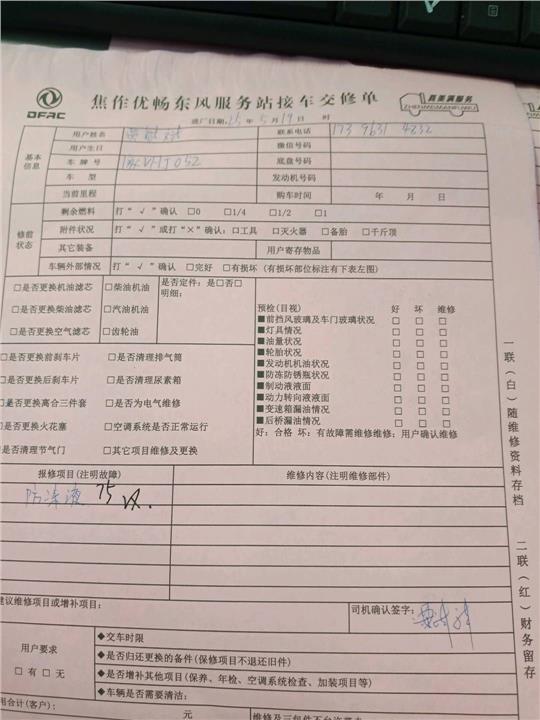 DFAC
焦作优畅东风服务站接车交修单
真美满服务
ZHENMEIMANFUWU
进厂日期:25年5月19日 时
基本信息
用户姓名 联系电话 173 9631 4232
用户生日 微信号码
车牌号 底盘号码
车型 发动机号码
当前里程 购车时间 年 月 日
修前状态
剩余燃料 打“√”确认 □0 □1/4 □1/2 □1
附件状况 打“√”或打“×”确认:□工具 □灭火器 □备胎 □千斤顶
其它装备 用户寄存物品
车辆外部情况 打“√”确认 □完好 □有损坏(有损坏部位标注有下表左图)
□是否更换机油滤芯 □柴油机油 是否定件:是□否□
明细:
□是否更换柴油滤芯 □汽油机油
□是否更换空气滤芯 □齿轮油
□是否更换前刹车片 □是否清理排气筒
□是否更换后刹车片 □是否清理尿素箱
是否更换离合三件套 □是否为电气维修
是否更换火花塞 □空调系统是否正常运行
是否清理节气门 □其它项目维修及更换
预检(目视) 好 坏 维修
■前挡风玻璃及车门玻璃状况 □ □ □
■灯具情况 □ □ □
■油量状况 □ □ □
■轮胎状况 □ □ □
■发动机机油状况 □ □ □
■防冻防锈瓶状况 □ □ □
■制动液液面 □ □ □
■动力转向液液面 □ □ □
■变速箱漏油情况 □ □ □
■后桥漏油情况 □ □ □
好:合格 坏:有故障需维修维修:用户确认维修
报修项目(注明故障) 维修内容(注明维修部件)
防冻液 75
建议维修项目或增补项目: 司机确认签字:
用户要求
□有 □无
◆交车时限
◆是否归还更换的备件(保修项目不退还旧件)
◆是否增补其他项目(保养、年检、空调系统检查、加装项目等)
◆车辆是否需要清洁:
用合计(客户): 元
一联(白)随维修资料存档
二联(红)财务留存